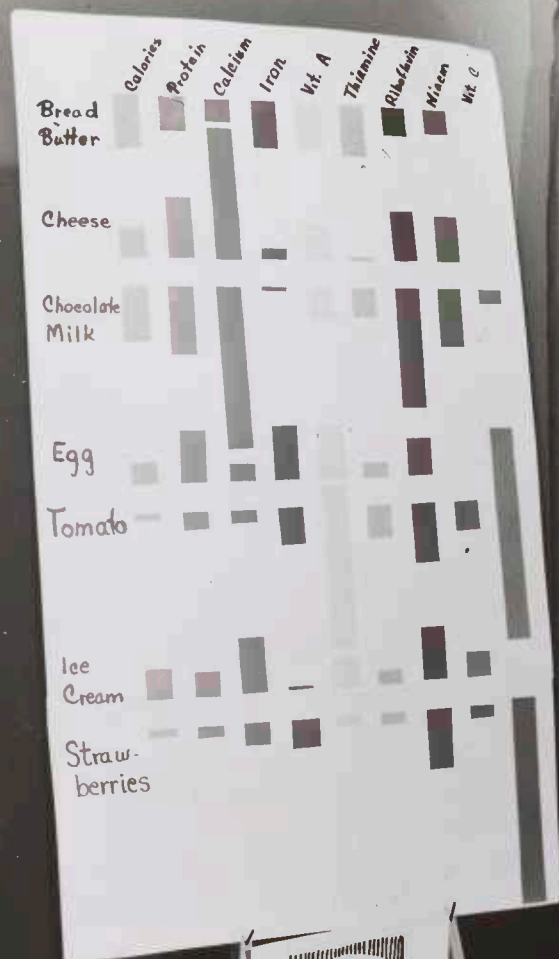 Calories Protein Calcium Iron Vit. A Thiamine Riboflavin Niacin Vit. C
Bread
Butter
Cheese
Chocolate
Milk
Egg
Tomato
Ice
Cream
Straw-
berries